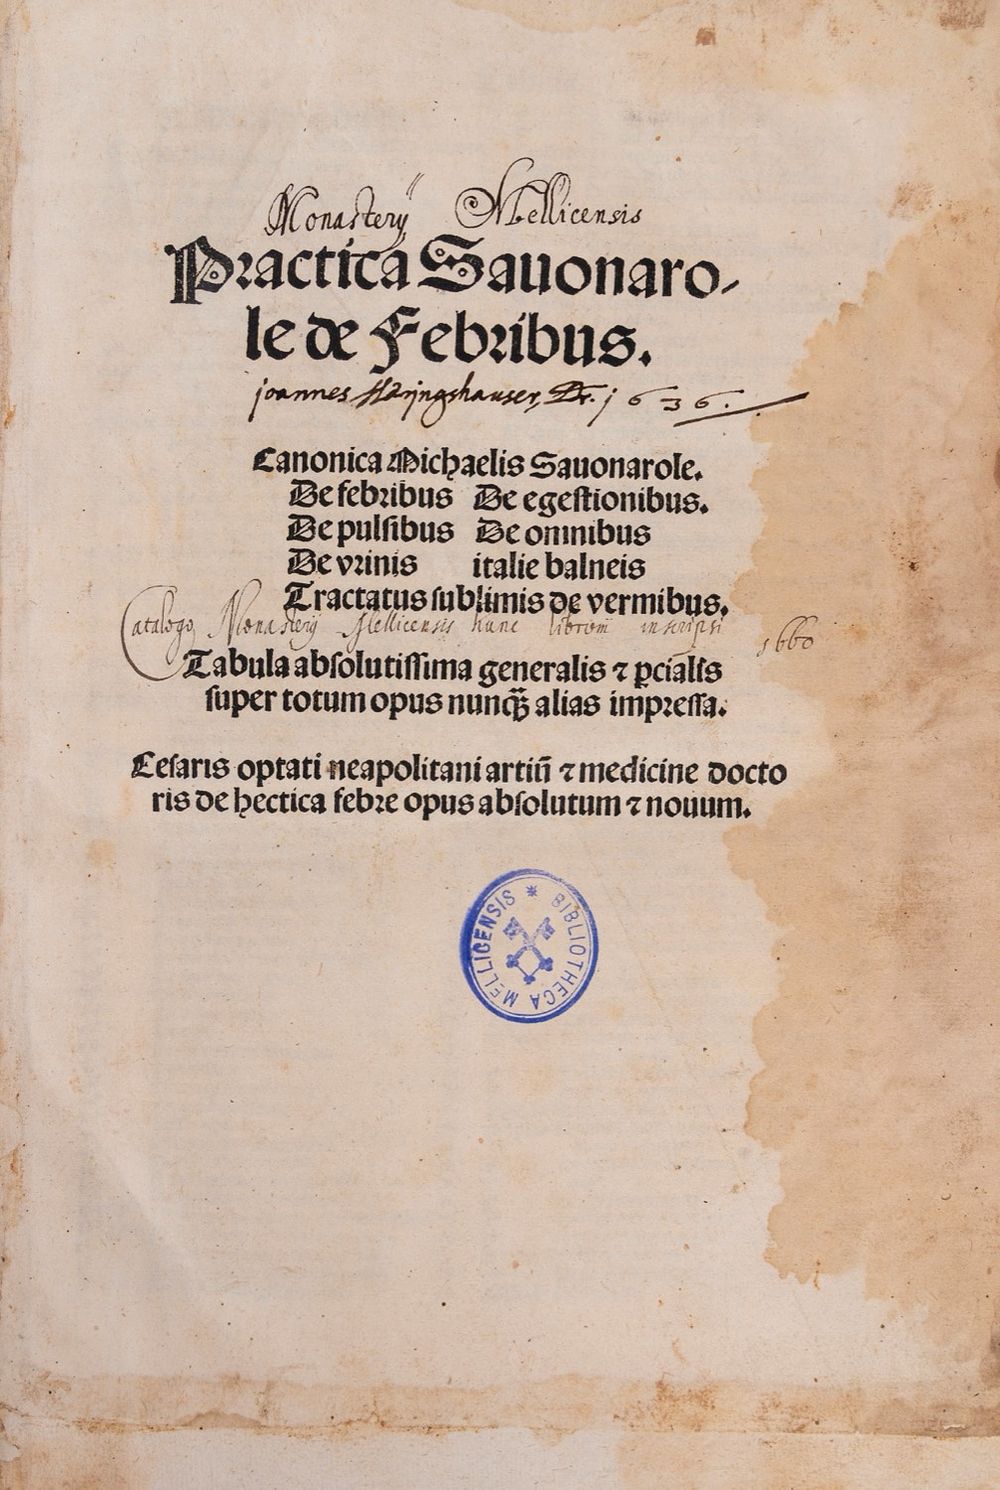 Monasterij Mellicensis
Practica Sauonaro-
le de Febribus.
joannes Häringshauser, Dr. 1636.
Canonica Michaelis Sauonarole.
De febribus De egestionibus.
De pulsibus De omnibus
De vrinis italie balneis
Tractatus sublimis de vermibus.
Catalogo Monasterij Mellicensis hunc librum inscripsi 1660
Tabula absolutissima generalis ⁊ ꝑcialis
super totum opus nunqȝ alias impressa.
Cesaris optati neapolitani artiū ⁊ medicine docto
ris de hectica febre opus absolutum ⁊ nouum.
BIBLIOTHECA MELLICENSIS *